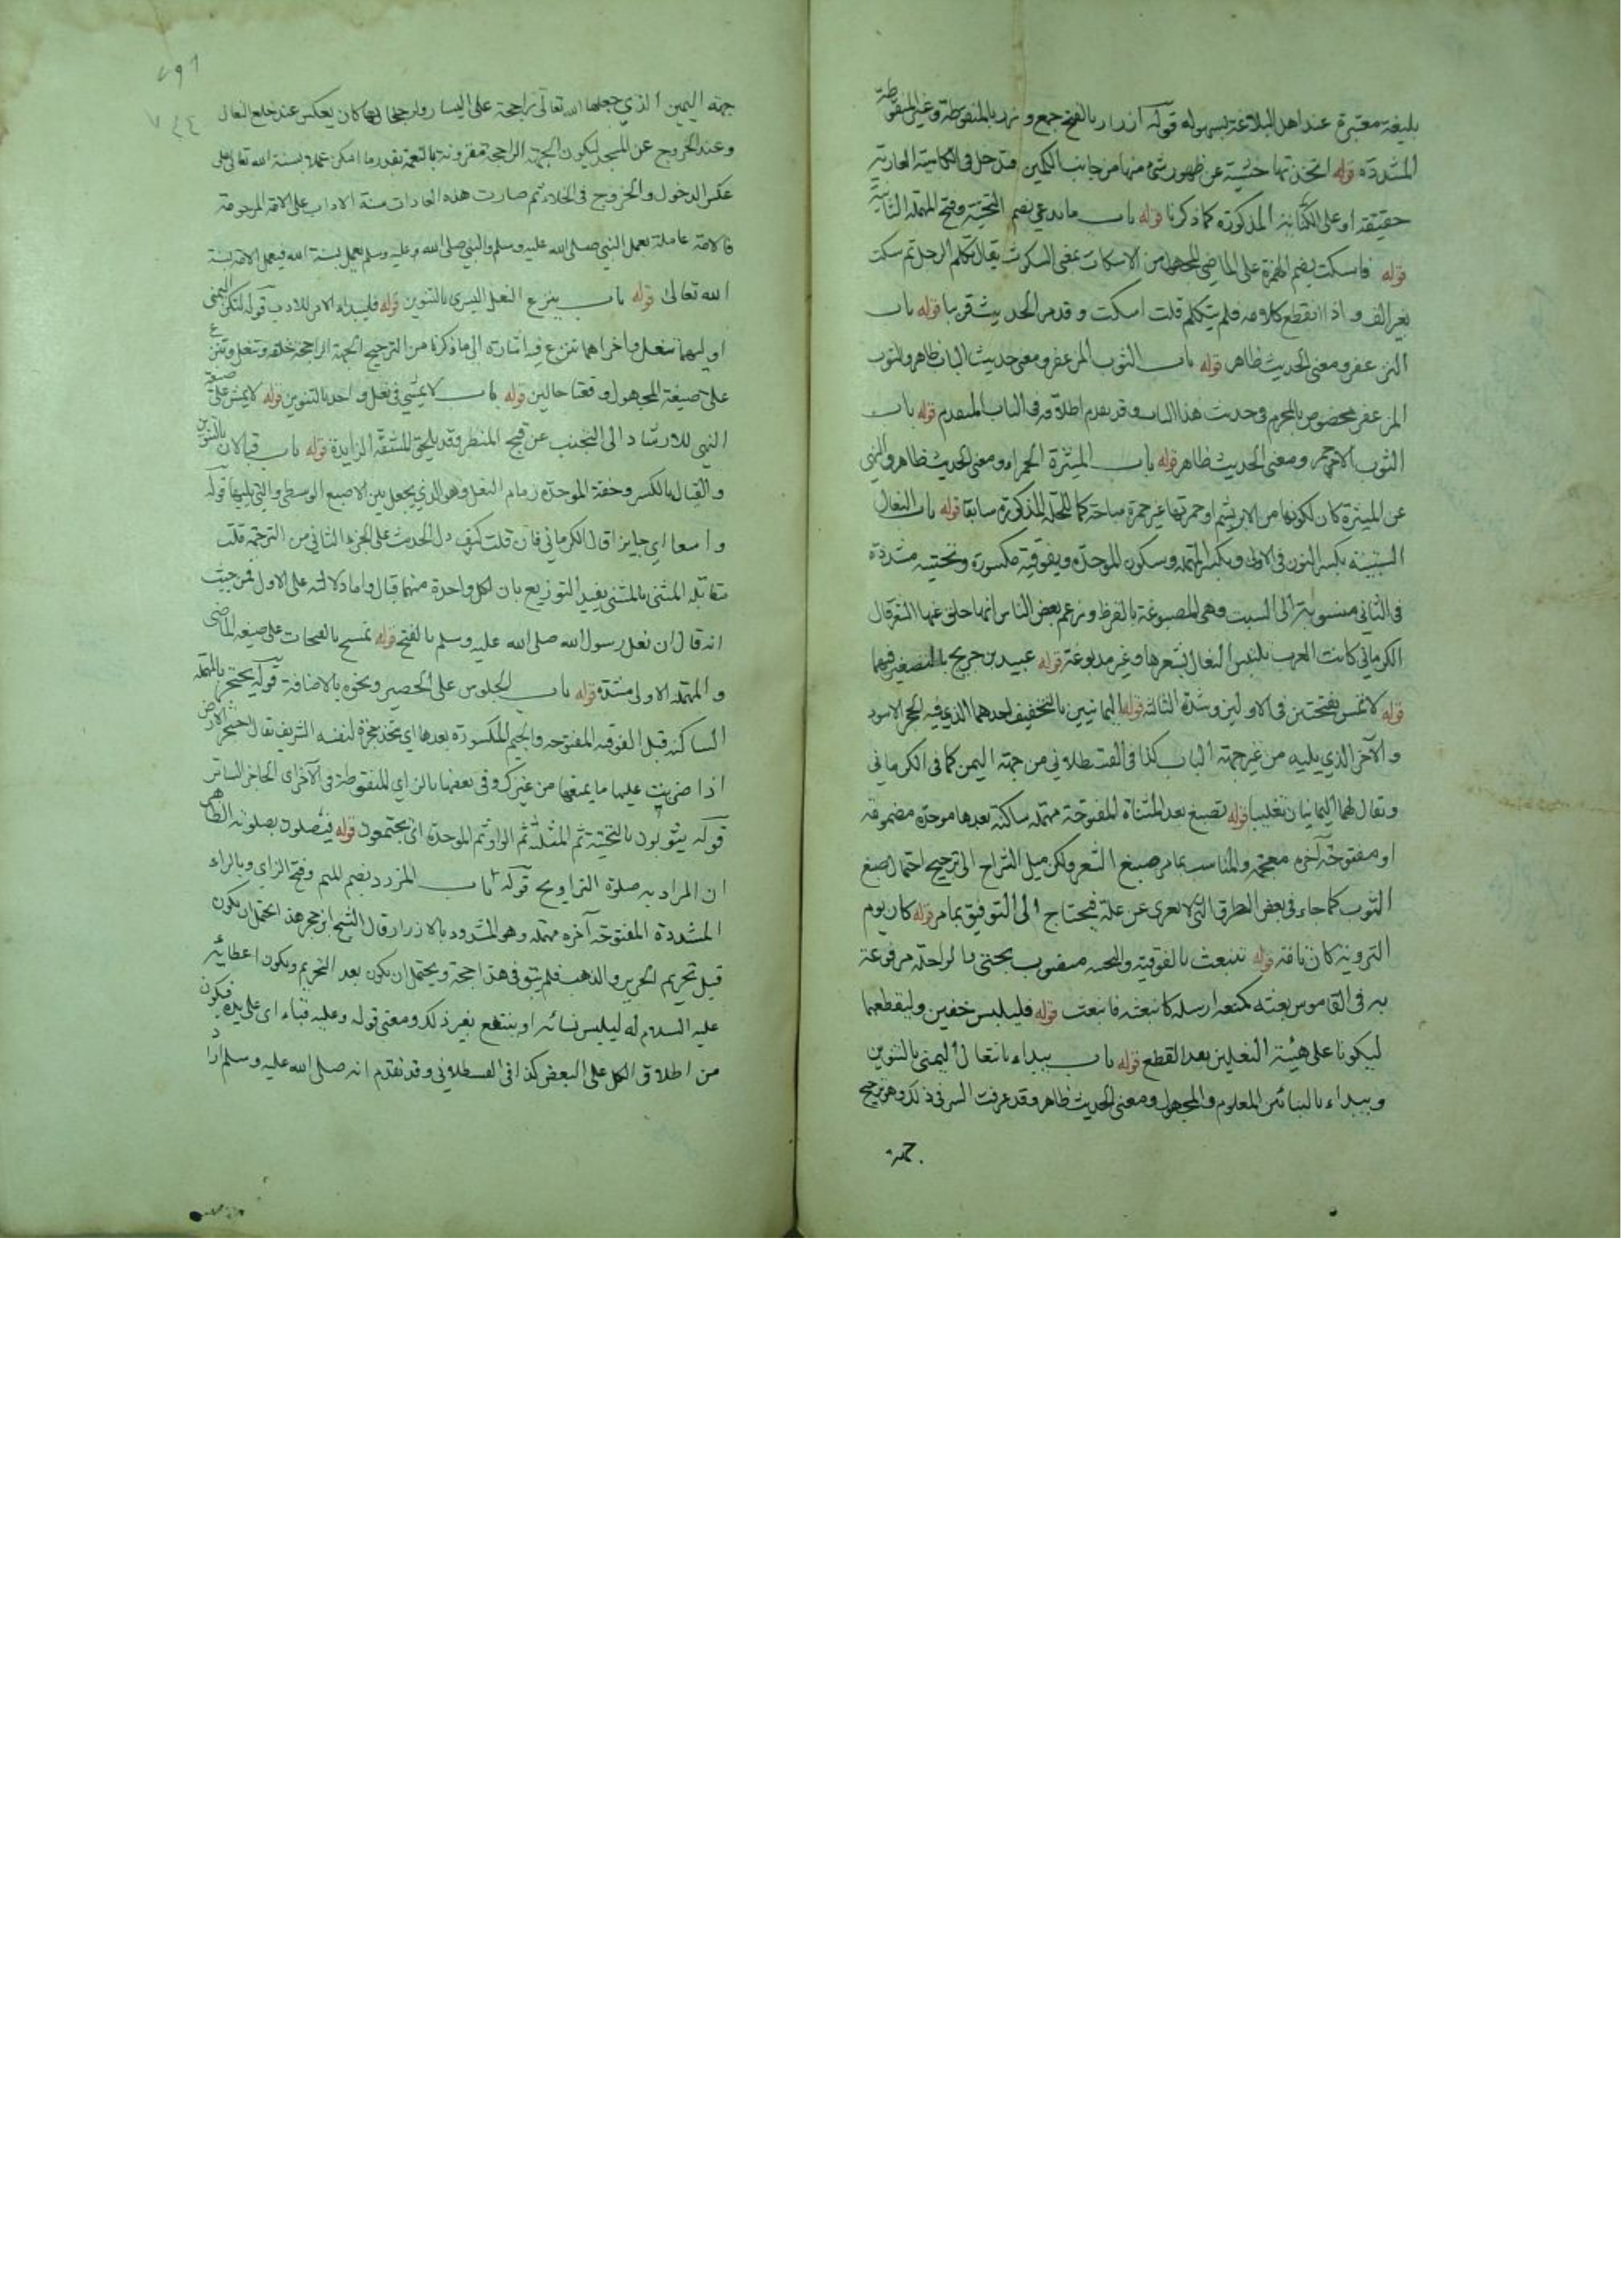 بليغة معتبرة عند اهل البلاغة بسهوله قوله ازرار بالفتح جمع و زرد بالمنقوطة وغير المنقوطة
المشددة قوله اتخذتها خشية عن ظهور شئ منها من جانب الكمين فتدخل في الكاسية العارية
حقيقة او على الكناية المذكورة كما ذكرنا قوله باب ما يدعى بضم التحتية وفتح المهملة الثانية
قوله فاسكت بضم الهمزة على الماضي المجهول من الاسكات بمعنى السكوت يقال تكلم الرجل ثم سكت
بغير الف و اذا انقطع كلامه فلم يتكلم قلت اسكت و قد مر الحديث قريبا قوله باب
التزعفر ومعنى الحديث ظاهر قوله باب الثوب المزعفر ومعنى حديث الباب ظاهر والثوب
المزعفر مخصوص بالمحرم في حديث هذا الباب وقد تقدم اطلاقه في الباب المتقدم قوله باب
الثوب الاحمر ومعنى الحديث ظاهر قوله باب الميثرة الحمراء ومعنى الحديث ظاهر والنهي
عن الميثرة كان لكونها من الابريشم او حمرتها غير حمرة مباحة كما للحلة المذكورة سابقا قوله باب النعال
السبتية بكسر النون في الاولى وبكسر المهملة وسكون الموحدة وبفوقية مكسورة وتحتية مشددة
في الثاني منسوبة الى السبت وهي المصبوغة بالقرظ وزعم بعض الناس انها حلق عنها الشعر قال
الكرماني كانت العرب تلبس النعال بشعرها وغير مدبوغة قوله عبيد بن جريج بالتصغير فيهما
قوله لا تمس بفتحتين في الاولين وشدة الثالثة قوله اليمانيين بالتخفيف احدهما الذي فيه الحجر الاسود
والآخر الذي يليه من غير جهة الباب كذا في القسطلاني من جهة اليمن كما في الكرماني
ويقال لهما اليمانيان تغليبا قوله تصبغ بعد المثناة المفتوحة مهملة ساكنة بعدها موحدة مضمومة
او مفتوحة آخره معجمة والمناسب بما مر صبغ الشعر ولكن ميل الشراح الى ترجيح احتمال صبغ
الثوب كما جاء في بعض الطرق التي لا تعرى عن علة فيحتاج الى التوفيق بما مر قوله كان يوم
التروية كان تافة قوله تنبعث بالفوقية والتحتية منصوب بحتى بالراحلة مرفوعة
به في القاموس بعثه كمنعه ارسله كانبعثه فانبعث قوله فليلبس خفين وليقطعهما
ليكونا على هيئة النعلين بعد القطع قوله باب يبداء بانتعال اليمنى بالتنوين
ويبداء بالبنائين المعلوم والمجهول ومعنى الحديث ظاهر وقد عرفت السر في ذلك وهو ترجيح
جهة
جهة اليمين الذي جعلها الله تعالى راجحة على اليسار ولرجحانها كان يعكس عند خلع النعال
وعند الخروج عن المسجد ليكون الجهة الراجحة مقرونة بالنعمة بقدر ما امكن عملا بسنة الله تعالى على
عكس الدخول والخروج في الخلاء ثم صارت هذه العادات سنة الاداب على الامة المرحومة
فالامة عاملة بعمل النبي صلى الله عليه وسلم والنبي صلى الله وعليه وسلم يعمل بسنة الله فيعمل الامة بسنة
الله تعالى قوله باب ينزع النعل اليسرى بالتنوين قوله فليبداء الامر للادب قوله لتكن اليمنى
اوليهما تنعل واخراهما تنزع فيه اشارة الى ما ذكرنا من الترجيح الجهة الراجحة خلقه وتنعل وتنزع
على صيغة المجهول وقعتا حالين قوله باب لا يمشي في نعل واحد بالتنوين قوله لا يمش على صيغة
النهي للارشاد الى التجنب عن قبح المنظر وقد يلحق المشقة الزايدة قوله باب قبالان بالتنوين
والقبال بالكسر وخفة الموحدة زمام النعل وهو الذي يجعل بين الاصبع الوسطى والتي يليها قوله
واسعا اي جايزا قال الكرماني فان قلت كيف دل الحديث على الجزء الثاني من الترجمة قلت
مقابلة المثنى بالمثنى يفيد التوزيع بان لكل واحدة منهما قبال واما دلالته على الاول فمن حيث
انه قال ان نعل رسول الله صلى الله عليه وسلم بالفتح قوله تمسح بالفتحات على صيغة الماضي
والمهملة الاولى مشددة قوله باب الجلوس على الحصير ونحوه بالاضافة قوله يحتجر بالمهملة
الساكنة قبل الفوقية المفتوحة والجيم المكسورة بعدها اي يتخذ حجرة لنفسه الشريف يقال احتجر الارض
اذا ضربت عليها ما يمنعها من غيرك وفي بعضها بالزاي المنقوطة في الآخر اي الحاجز الساتر
قوله يثوبون بالتحتية ثم المثلثة ثم الواو ثم الموحدة اي يجتمعون قوله فيصلون بصلوته الظاهر
ان المراد به صلوة التراويح قوله باب المزرر بضم الميم وفتح الزاي وبالراء
المشددة المفتوحة آخره مهملة وهو المشدود بالازرار قال الشيخ ابن حجر هذا يحتمل ان يكون
قبل تحريم الحرير والذهب فلم يبق في هذا حجة ويحتمل ان يكون بعد التحريم ويكون اعطائه
عليه السلام له ليلبس نسائه او ينتفع بغير ذلك ومعنى قوله وعليه قباء اي على يده فيكون
من اطلاق الكل على البعض كذا في القسطلاني وقد تقدم انه صلى الله عليه وسلم اراد